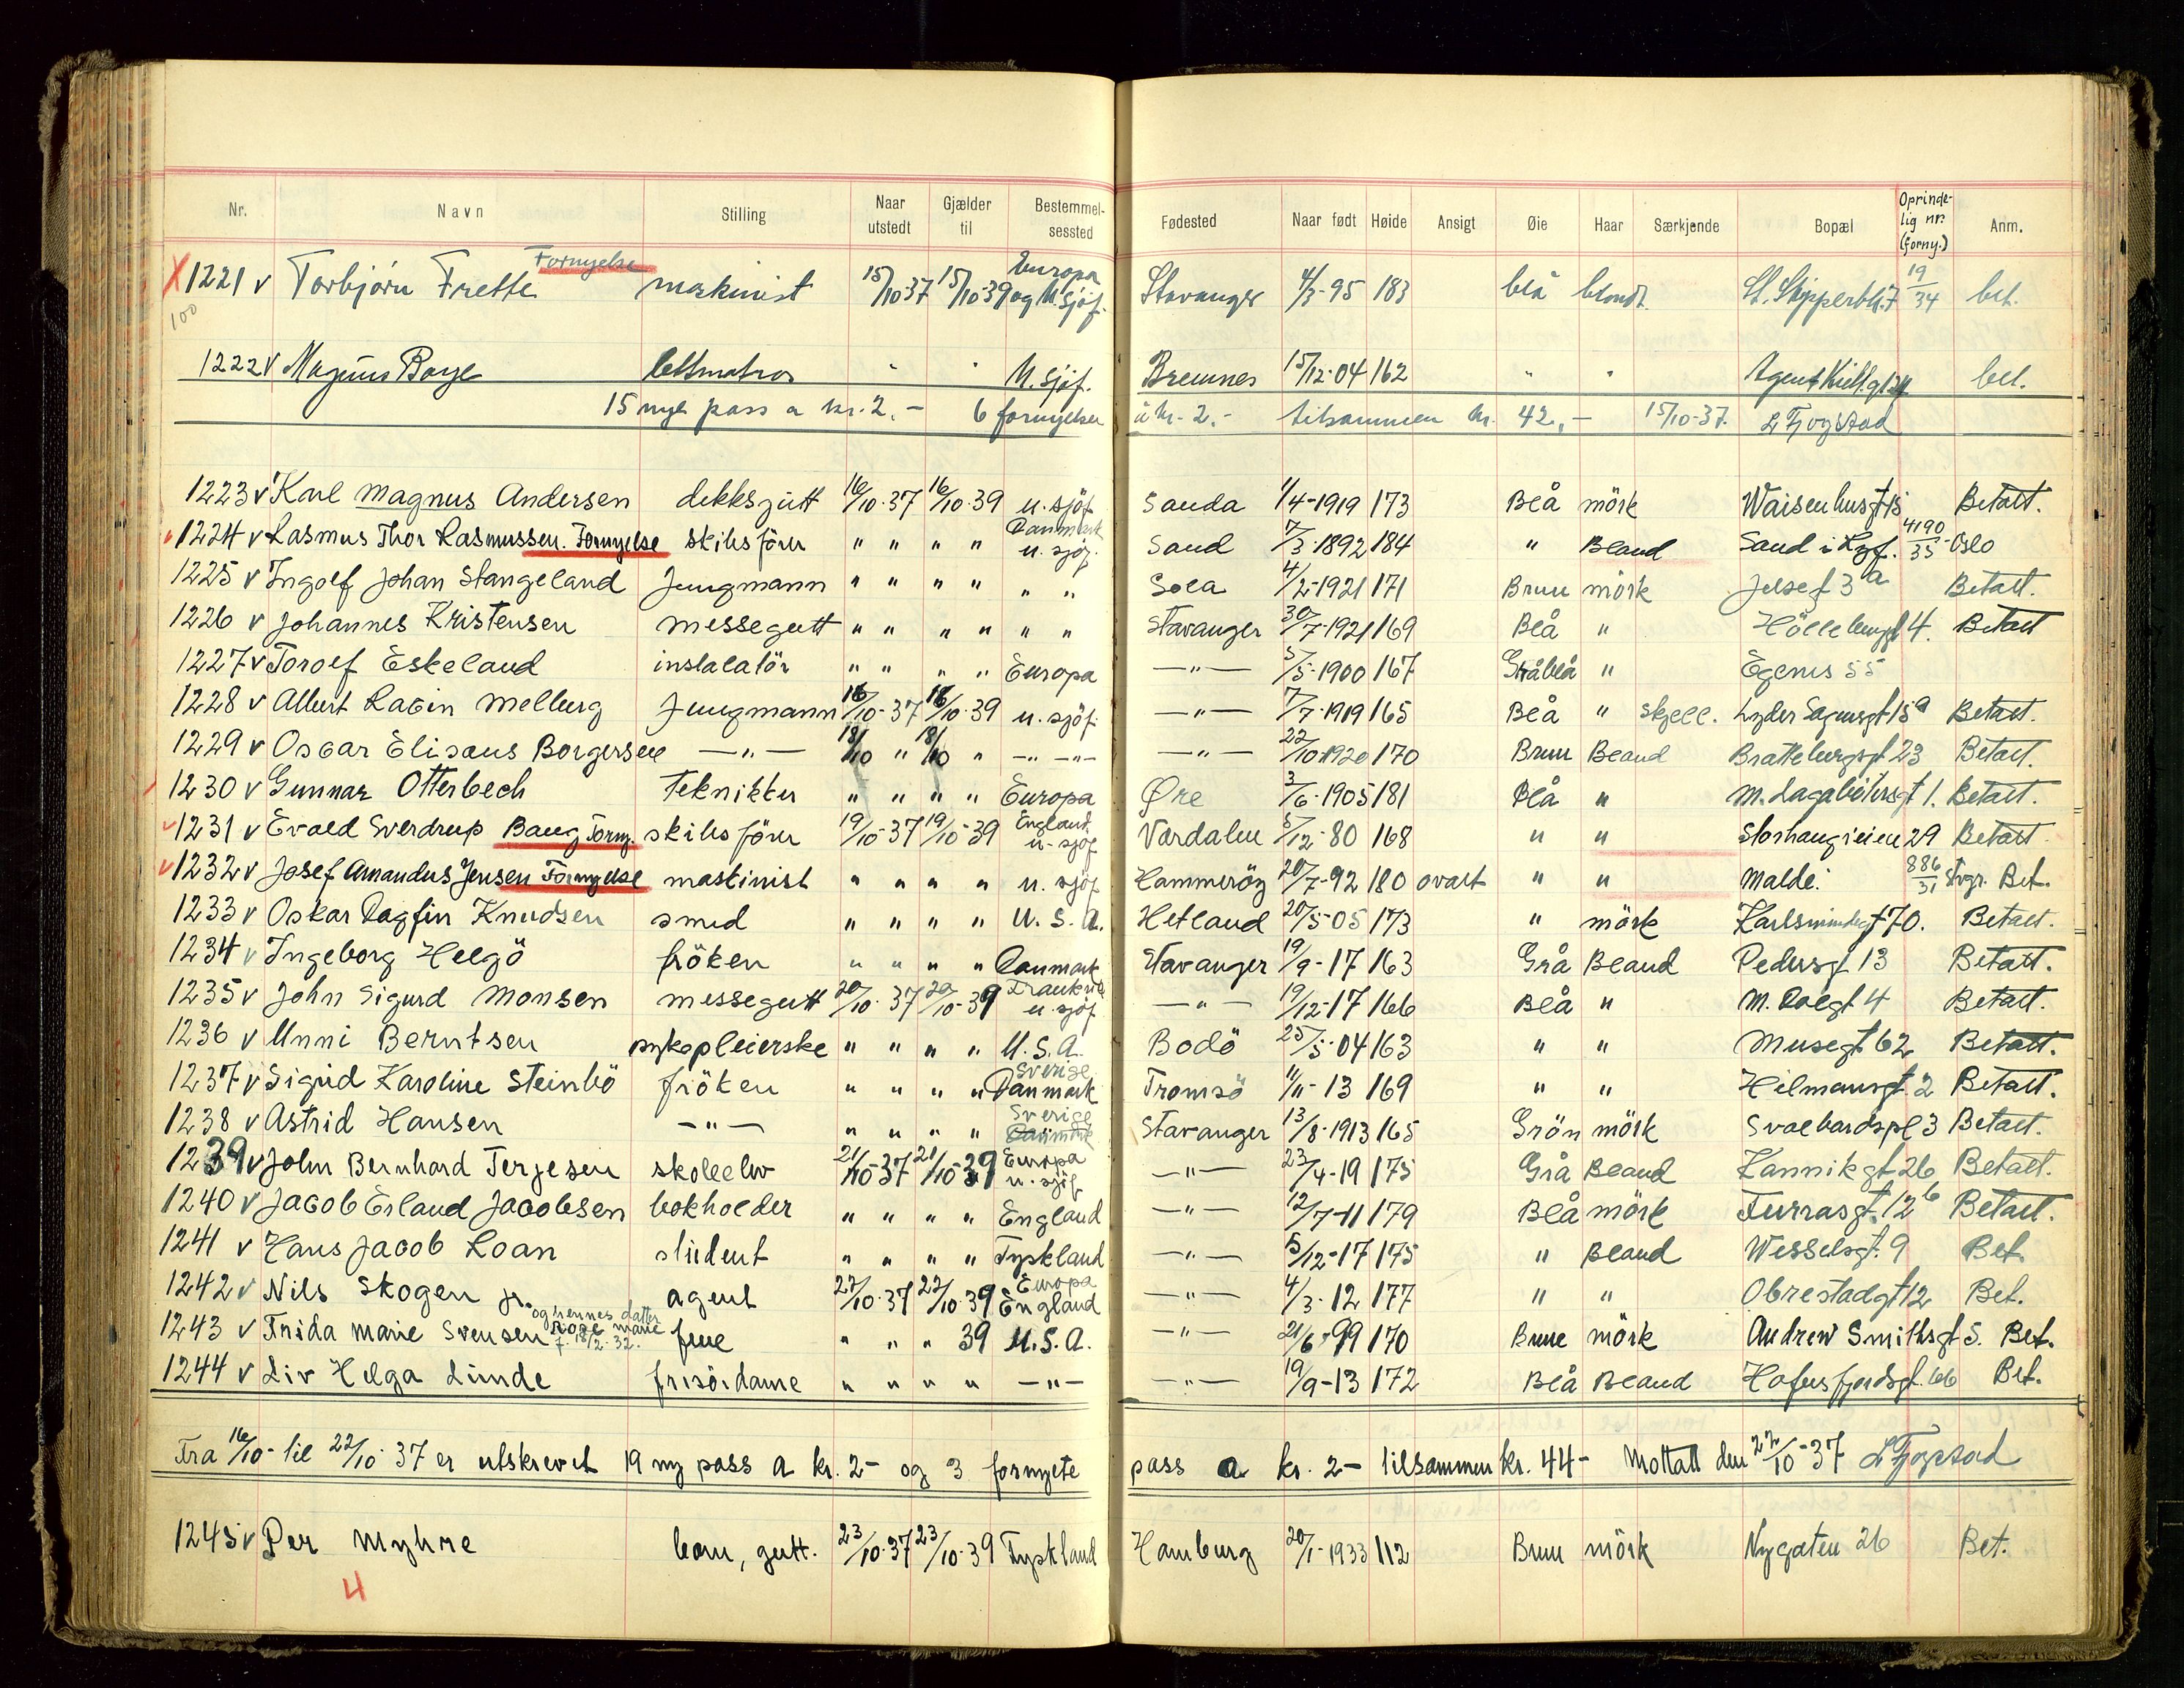 Nr. Navn Stilling Naar utstedt Gjælder til Bestemmelsessted Fødested Naar født Høide Ansigt Øie Haar Særkjende Bopæl Oprindelig nr. (forny.) Anm.
X 1221 v Torbjørn Frette Fornyelse maskinist 15/10 37 15/10-39 Europa og U. sjøf. Stavanger 4/3-95 183 blå blondt. St. Skipperbk. 7 19/34 bet.
100
1222 v Magnus Boye lettmatros " " U. sjøf. Bremnes 15/12-04 162 " " Agent Kiell.gt 24 bet.
15 nye pass a kr. 2.- 6 fornyelser à kr. 2.- tilsammen kr. 42,- 15/10-37. L Fjogstad
1223 v Karl Magnus Andersen dekksgutt 16/10-37 16/10-39 u. sjöf. Sauda 1/4-1919 173 Blå mörk Waisenhusgt 15 Betalt.
v 1224 v Rasmus Thor Rasmussen. Fornyelse skibsförer " " " " Danmark u. sjöf. Sand 7/3-1892 184 " Bland Sand i Ryf. 4190/35 - Oslo
1225 v Ingolf Johan Stangeland Jungmann " " " " " " Sola 4/2-1921 171 Brun mörk Jelsegt 3 a Betalt.
1226 v Johannes Kristensen messegutt " " " " " " Stavanger 30/7-1921 169 Blå " 4. Betalt
1227 v Torolf Eskeland instalatör " " " " Europa — " — 5/5-1900 167 Gråblå " Egenes 55
1228 v Albert Rabin Melberg Jungmann 18/10-37 18/10-39 u. sjöf. — " — 7/7-1919 165 Blå " skjell. Lyder Sagensgt 15 a Betalt.
1229 v Oscar Elisæus Borgersen — " — 18/10 " 18/10 " — " — " — — " — 22/10 1920 170 Brun Bland Bratteburgsgt 23 Betalt.
1230 v Gunnar Otterbech Tekniker " " " " Europa Øre 3/6-1905 181 Blå " M. Lagabötersgt 1. Betalt.
v 1231 v Evald Sverdrup Baug Forny. skibsförer 19/10-37 19/10-39 England u. sjöf Værdalen 5/12-80 168 " " Storhaugveien 29 Betalt
v 1232 v Josef Amandus Jensen Fornyelse maskinist " " " " u. sjöf. Hammeröy 20/7-92 180 ovalt " " Malde. 886/31 Svgr. Bet.
1233 v Oskar Dagfin Knudsen smed " " " " U. S. A. Hetland 20/5-05 173 " mörk Karlsmindegt 70. Betalt.
1234 v Ingeborg Helgö fröken " " " " Danmark Stavanger 19/9-17 163 Grå Bland Pedersgt 13 Betalt.
1235 v John Sigurd Monsen messegutt 20/10-37 20/10-39 Frankrike u. sjöf. — " — 19/12-17 166 Blå " M. Dalgt 4 Betalt.
1236 v Unni Berntsen sykepleierske " " " " U. S. A. Bodö 25/5-04 163 " " Musegt 62 Betalt.
1237 v Sigrid Karoline Steinbö fröken " " " " Sverige Danmark Tromsö 11/11-13 169 " " Hilmansgt. 2 Betalt.
1238 v Astrid Hansen — " — " " " " Sverige Danmark Stavanger 13/8-1913 165 Grön mörk Svalbardspl 3 Betalt.
1239 v John Bernhard Terjesen skoleelev 21/10-37 21/10-39 Europa u. sjöf — " — 23/4-19 175 Grå Bland Kannikgt 26 Betalt.
1240 v Jacob Erland Jacobsen bokholder " " " " England — " — 12/7-11 179 Blå mörk Furrasgt. 12 b Betalt.
1241 v Hans Jacob Roan student " " " " Tyskland — " — 5/12-17 175 " Bland Wesselsgt. 9 Bet.
1242 v Nils Skogen jr. agent 22/10-37 22/10-39 Europa England — " — 4/3-12 177 " " Obrestadgt 12 Bet.
1243 v Frida Marie Svensen og hennes datter Marie f. 18/2-32. frue " " " 39 U.S.A. — " — 21/6-99 170 Brun mörk Andrew Smithsgt 5. Bet.
1244 v Liv Helga Lunde frisördame " " " " — " — — " — 19/9-13 172 Blå Bland Hafrsfjordsgt. 66 Bet.
Fra 16/10- til 22/10 37 er utskrevet 19 ny pass a kr. 2- og 3 fornyete pass a kr. 2- tilsammen kr. 44- Mottatt den 22/10-37 L Fjogstad
1245 v Per Myhre barn, gutt. 23/10-37 23/10-39 Tyskland Hamburg 20/1-1933 112 Brun mörk Nygaten 26 Bet.
4